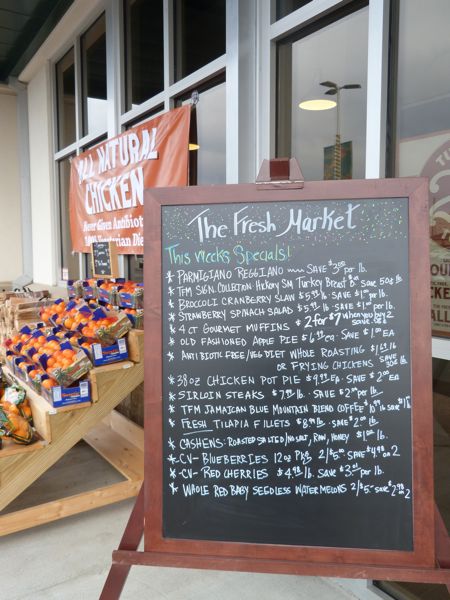 ALL NATURAL
CHICKEN
Never Given Antibiotics
100% Vegetarian Diet
The Fresh Market
This Weeks Specials!
* PARMIGIANO REGGIANO SAVE $3.00 per lb.
* TFM SIGN. COLLECTION: Hickory SM Turkey Breast 8.99 SAVE 50¢ lb
* BROCCOLI CRANBERRY SLAW $5.99 lb. SAVE $1.00 per lb.
* STRAWBERRY SPINACH SALAD $5.99 lb. SAVE $1.00 per lb.
* 4 CT GOURMET MUFFINS * 2 for $7 when you pay 2 SAVE
* OLD FASHIONED APPLE PIE $4.99 ea. SAVE $1.00 EA
* ANTIBIOTIC FREE/VEG DIET WHOLE ROASTING $1.69 lb
OR FRYING CHICKENS SAVE 30¢ lb.
* 38oz CHICKEN POT PIE $9.99 EA. SAVE $2.00 EA
* SIRLOIN STEAKS $7.99 lb. SAVE $2.00 per lb.
* TFM JAMAICAN BLUE MOUNTAIN BLEND COFFEE $10.99 lb SAVE $1 lb
* FRESH TILAPIA FILLETS $8.99 lb. SAVE $2.00 lb.
* CASHEWS: ROASTED SALTED/No SALT, RAW, HONEY $1.00 lb.
* -CV- BLUEBERRIES 12oz Pkg 2/$5.00 SAVE $4.98 on 2
* -CV- RED CHERRIES $4.98 lb. SAVE $3.01 per lb.
* WHOLE RED BABY SEEDLESS WATERMELONS 2/$5.- SAVE $2.98 on 2